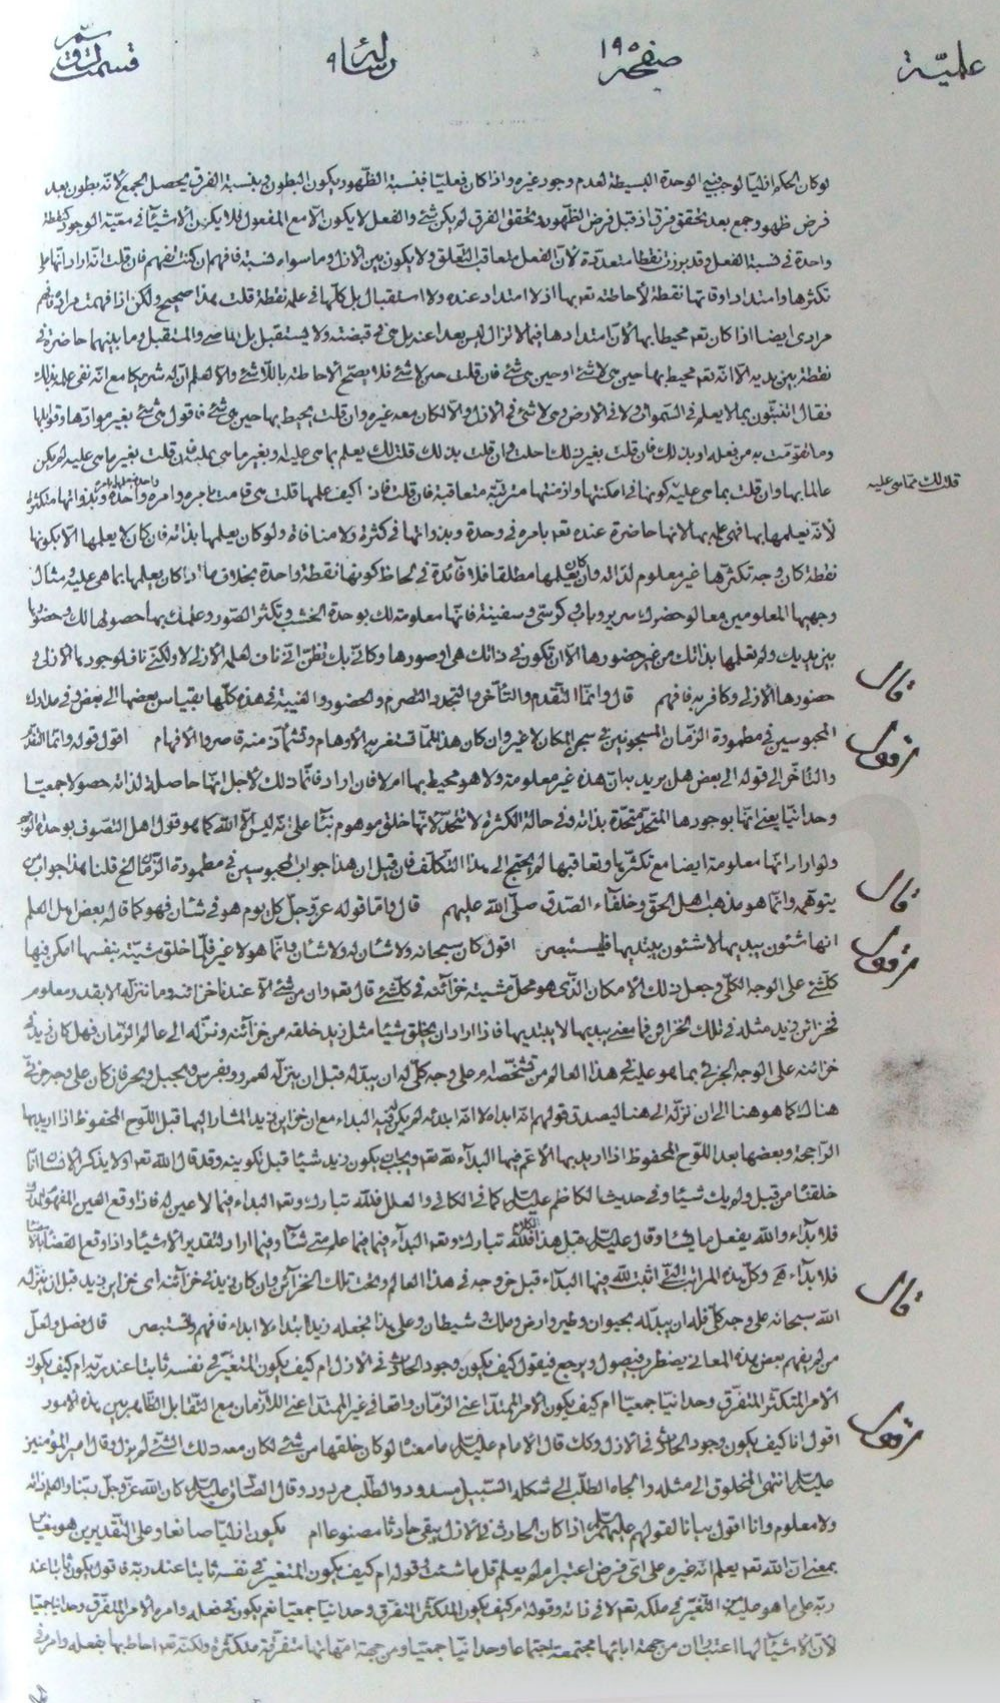 علميّة صفحه ١٩٥ رسالة ٩ قسمت
لوكان الحكم ازليا لوجب فيه الوحدة البسيطة لعدم وجود غيره واذا كان فعليا فنسبة الظهور يكون البطون وبنسبة الفرق يحصل الجمع لانه بطون بعد
فرض ظهور وجمع بعد تحقق فرق اذ قبل فرض الظهور وتحقق الفرق لم يكن شئ والفعل لا يكون الا مع المفعول فلا يكون الاشياء في معيّة الوجود كنقطة
واحدة في نسبة الفعل وقد برزت نقطا متعددة لان الفعل متعاقب التعلق ولا يكون بين الازل وما سواه نسبة فافهم ان كنت تفهم فان قلت انه اراد انها على
تكثرها وامتداد اوقاتها نقطة لاحاطته تعالى بها اذ لا امتداد عنده ولا استقبال بل كلها في علمه نقطة قلت هذا صحيح ولكن اذا فهمت مراده فافهم
مرادي ايضا اذا كان تعالى محيطا بها الان وامتدادها فيما لا يزال ليس بعيدا عنه بل هي في قبضته ولا يستقبل بل الماضي والمستقبل وما بينهما حاضرة في
نقطة بين يديه الا انه تعالى محيط بها حين هي لا شئ او حين هي شئ فان قلت حين لا شئ فلا يصح الاحاطة باللا شئ والا لعلم ان له شريكا مع انه نفى علمه بذلك
فقال اتنبئون بما لا يعلم في السموات ولا في الارض وهي لا شئ في الازل والا لكان معه غيره وان قلت يحيط بها حين هي شئ فاقول هي شئ بغير موادها وقوابلها
وما تقوّمت به من فعله او بذلك فان قلت بغير ذلك احلت وان قلت بذلك قلت لك يعلم بما هي عليه او بغير ما هي عليه فان قلت بغير ما هي عليه لم يكن
قلت لك بما هي عليه
عالما بها وان قلت بما هي عليه كونها في امكنتها وازمنتها مترتبة متعاقبة فان قلت فاذا كيف علمها قلت هي قامت بامره وامره واحدة وبذواتها متكثرة
لانه يعلمها بها فهي علمه بها لانها حاضرة عنده تعالى بامره في وحدة وبذواتها في كثرة ولا منافاة ولو كان يعلمها بذاته فان كان لا يعلمها الا بكونها
نقطة كان وجه تكثرها غير معلوم لذاته وان كان يعلمها مطلقا فلا فائدة في لحاظ كونها نقطة واحدة بخلاف ما اذا كان يعلمها بما هي عليه ومثال
وجهيها المعلومين معا لو حضر لك سرير وباب وكرسي وسفينة فانها معلومة لك بوحدة الخشب وتكثر الصور وعلمك بها حصولها لك وحضورها
بين يديك ولم تعلمها بذاتك من غير حضورها الا ان تكون في ذاتك هي او صورها وكاني بك تظن اني ناف لعلمه الازلي لا ولكني ناف لوجودها الازلي و
قال
حضورها الازلي وكافر به فافهم قال وانما التقدم والتأخر والتجدد والتصرم والحضور والغيبة في هذه كلها بقياس بعضها الى بعض وفي مدارك
اقول
المحبوسين في مطمورة الزمان المسجونين في سجن المكان لا غير وان كان هذا لمما تستغربه الاوهام وتشمأز منه قاصروا الافهام اقول قوله وانما التقدم
والتأخر الى قوله الى بعض هل يريد به ان هذه غير معلومة ولا هو محيط بها ام لا فان اراد فانما ذلك لاجل انها حاصلة لذاته حصولا جمعيا
وحدانيا يعني انها بوجودها المتحد متحدة بذاته وفي حالة الكثرة لا تتحد لانها خلق موهوم بناء على انه ليس الا الله كما هو قول اهل التصوف بوحدة الوجود
ولو اراد انها معلومة ايضا مع تكثرها وتعاقبها لم يحتج الى هذا التكلف فان قيل ان هذا جواب المحبوسين في مطمورة الزمان الخ قلنا هذا جواب من
قال
يتوهمه وانما هو مذهب اهل الحق وخلفاء الصدق صلى الله عليهم قال واما قوله عز وجل كل يوم هو في شأن فهو كما قاله بعض اهل العلم
اقول
انها شئون يبديها لا شئون يبتديها فليستبصر اقول كان سبحانه ولا شأن له ولا شان وانما هو لا غير فلما خلق مشيته بنفسها امكن فيها
كل شئ على الوجه الكلي وجعل ذلك الامكان الذي هو محل مشيته خزائنه في كل شئ قال تعالى وان من شئ الا عندنا خزائنه وما ننزله الا بقدر معلوم
فخزائن زيد مثله في تلك الخزائن فما معنى يبديها لا يبتديها فاذا اراد ان يخلق شيئا مثل زيد خلقه من خزائنه ونزله الى عالم الزمان فهل كان زيد في
خزائنه على الوجه الجزئي بما هو عليه في هذا العالم من تشخصه ام على وجه كلي له ان يبدله قبل ان ينزله لعمرو وبفرس وبجبل وببحر فان كان على وجه جزئي
هناك كما هو هنا الى ان نزله الى هنا ليصدق قولهم انه ابداء لا انه ابتداء لم يكن فيه البداء مع ان خزائن زيد المشار اليها قبل اللوح المحفوظ اذا اريد بها
الراجحة وبعضها بعد اللوح المحفوظ اذا اريد بها الاعم فيها البداء لله تعالى ويجب ان يكون زيد شيئا قبل تكوينه وقد قال الله تعالى اولا يذكر الانسان انا
خلقناه من قبل ولم يك شيئا وفي حديث الكاظم عليه السلم كما في الكافي والعلل فلله تبارك وتعالى البداء فيما لا عين له فاذا وقع العين المفهوم المدرك
فلا بداء والله يفعل ما يشاء وقال عليه السلم قبل هذا الكلام فلله تبارك وتعالى البداء فيما علم متى شاء وفيما اراد لتقدير الاشياء فاذا وقع القضاء بالامضاء
قال
فلا بداء هـ وكل هذه المراتب التي اثبت لله فيها البداء قبل خروجه في هذا العالم وتحت تلك الخزائن وان كان زيد في خزائنه اي خزائن زيد قبل ان ينزله
الله سبحانه على وجه كلي فله ان يبدله بحيوان وطير وارض وملك وشيطان وعلى هذا فجعله زيدا ابتداء لا ابداء فافهم واستبصر قال فصل ولعل
من لم يفهم بعض هذه المعاني يضطرب فيصول ويرجع فيقول كيف يكون وجود الحادث في الازل ام كيف يكون المتغير في نفسه ثابتا عند ربه ام كيف يكون
الامر المتكثر المتفرق وحدانيا جمعيا ام كيف يكون الامر الممتد اعني الزمان واقعا في غير الممتد اعني اللازمان مع التقابل الظاهر بين هذه الامور
اقول
اقول انا كيف يكون وجود الحادث في الازل وكك قال الامام عليه السلم ما معناه لو كان خلقها من شئ لكان معه ذلك الشئ لم يزل وقال امير المؤمنين
عليه السلم انتهى المخلوق الى مثله والجاه الطلب الى شكله السبيل مسدود والطلب مردود وقال الصادق عليه السلم كان الله عز وجل ربنا والعلم ذاته
ولا معلوم وانا اقول بيانا لقولهم عليهم السلم اذا كان الحادث في الازل يبقى حادثا مصنوعا ام يكون ازليا صانعا وعلى التقديرين هو يغاير
بمعنى ان الله تعالى يعلم انه غيره على اي فرض اعتبر ام لم يعلم قل ما شئت وقوله ام كيف يكون المتغير في نفسه ثابتا عند ربه فاقول يكون ثابتا عند
ربه على ما هو عليه من التغير في ملكه تعالى لا في ذاته وقوله ام كيف يكون المتكثر المتفرق وحدانيا جمعيا نعم يكون في فعله وامره الامر المتفرق وحدانيا جمعيا
لان الاشياء لها اعتباران من جهة ابائها مجتمعة اجتماعا وحدانيا جمعيا ومن جهة امهاتها متفرقة متكثرة ولكنه تعالى احاط بها بفعله وامره في